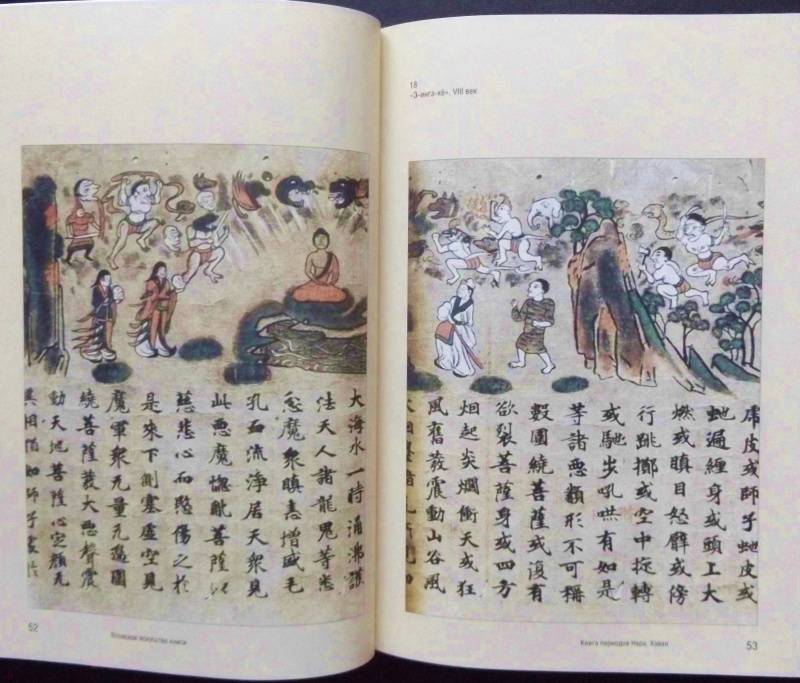 大海水一時涌沸護
法天人諸龍鬼等悉
忿魔衆瞋恚增盛毛
孔血流淨居天衆見
此惡魔惱亂菩薩以
慈悲心而愍傷之於
是來下側塞虛空見
魔軍衆无量无邊圍
繞菩薩發大惡聲震
動天地菩薩心定顏无
異相猶如師子處於
52
Японское искусство книги
18
«Э-инга-кё». VIII век
虎皮或師子虵皮或
虵遍纏身或頭上大
燃或瞋目怒臂或傍
行跳擲或空中旋轉
或馳步吼哮有如是
等諸惡類形不可稱
數圍繞菩薩或復有
欲裂菩薩身或四方
烟起炎爛衝天或狂
風奮發震動山谷風
Книга периодов Нара, Хэйан
53